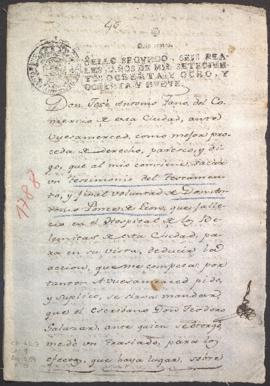 SELLO SEGVNDO, SEIS REA-
LES, AÑOS DE MIL SETECIEN-
TOS OCHENTA Y OCHO, Y
OCHENTA Y NUEVE.
Don José Antonio Lano del Co-
mercio de esta Ciudad, ante
Vuesamerced, como mejor proce-
da de derecho, paresco, y di-
go, que al mio conviene, sacar
un Testimonio del Testamen-
to, y final voluntad de Don An-
Ponce de Leon, que falle-
cio en el Hospital de los Be-
lemitas de esta Ciudad, pa-
ra en su vista, deducir la
accion, que me competa, por
tanto = A Vuesamerced pi-
do, y suplico, se sirva mandar,
que el Escribano Don Teodoro
Salazar, ante quien se otorgó
me dé un Traslado, para los
efectos, que haya lugar, sobre
1788